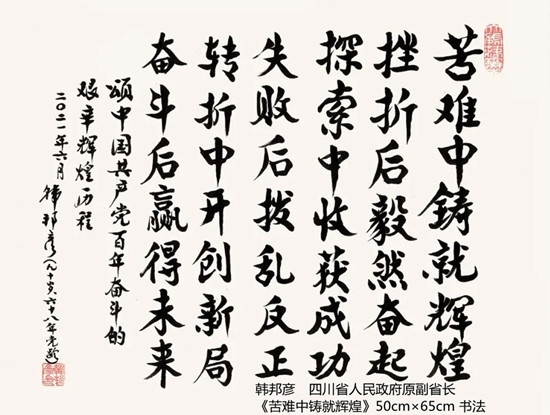 苦难中铸就辉煌
挫折后毅然奋起
探索中收获成功
失败后拨乱反正
转折中开创新局
奋斗后赢得未来
颂中国共产党百年奋斗的
艰辛辉煌历程
二〇二一年六月 韩邦彦（九十岁、六十八年党龄）
韩邦彦 四川省人民政府原副省长
《苦难中铸就辉煌》50cm×65cm 书法